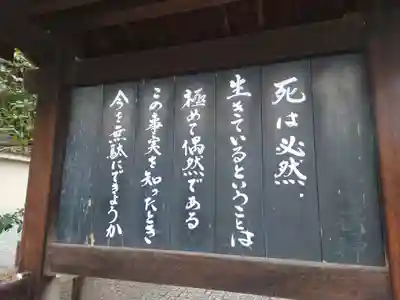 死は必然.
生きているということは
極めて偶然である
この事実を知ったとき
今を無駄にできようか